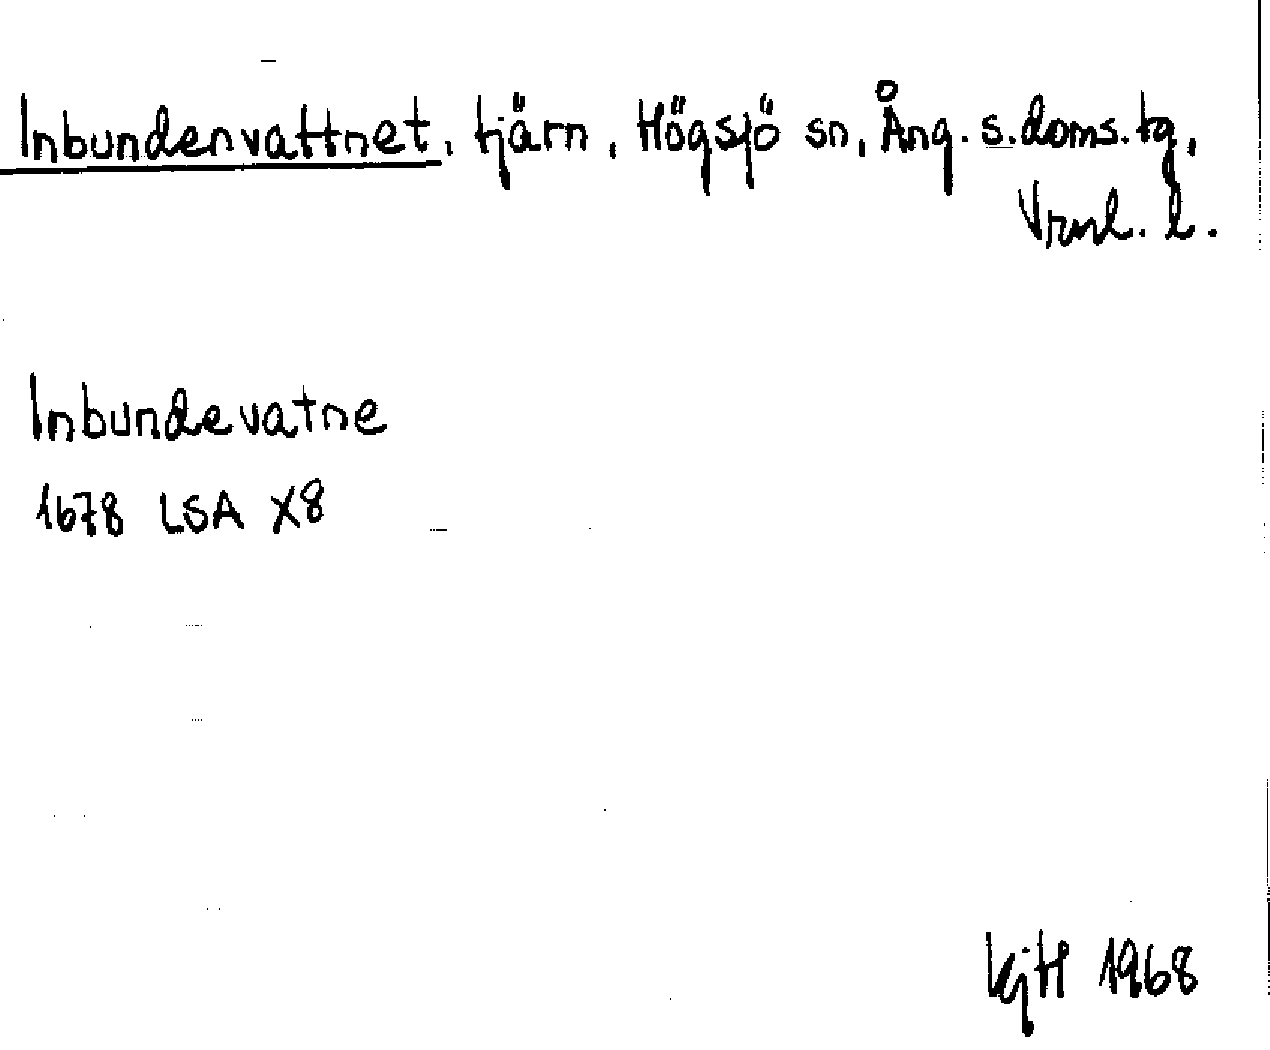 Inbundenvattnet, tjärn, Högsjö sn, Ång. s. doms. tg,
Vrnl. l.
Inbundevatne
1678 LSA X8
KjH 1968